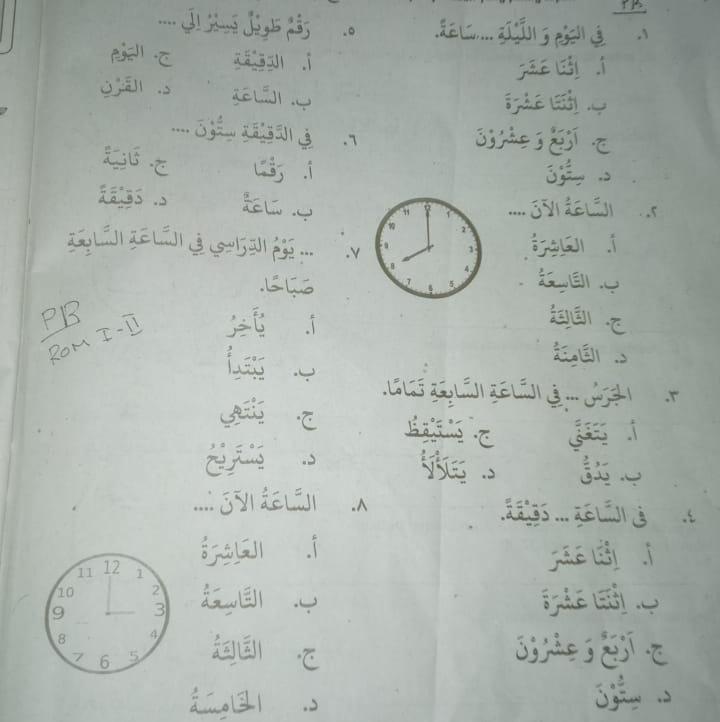 ١. في اليَوْمِ وَ اللَّيْلَةِ ... سَاعَةً.
أ. اِثْنَا عَشَرَ
ب. اِثْنَتَا عَشْرَةَ
ج. أَرْبَعٌ وَ عِشْرُوْنَ
د. سِتُّوْنَ
٢. السَّاعَةُ الآنَ ....
11 12 1
10 2
9 3
8 4
7 6 5
أ. العَاشِرَةُ
ب. التَّاسِعَةُ
ج. الثَّالِثَةُ
د. الثَّامِنَةُ
٣. الجَرَسُ ... في السَّاعَةِ السَّابِعَةِ تَمَامًا.
أ. يَتَغَنَّي ج. يَسْتَيْقِظُ
ب. يَدُقُّ د. يَتَلَأْلَأُ
٤. في السَّاعَةِ ... دَقِيْقَةً.
أ. اِثْنَا عَشَرَ
ب. اِثْنَتَا عَشْرَةَ
ج. أَرْبَعٌ وَ عِشْرُوْنَ
د. سِتُّوْنَ
٥. رَقْمٌ طَوِيْلٌ يَسِيْرُ إِلَي ....
أ. الدَّقِيْقَةِ ج. اليَوْمِ
ب. السَّاعَةِ د. القَرْنِ
٦. في الدَّقِيْقَةِ سِتُّوْنَ ....
أ. رَقْمًا ج. ثَانِيَةً
ب. سَاعَةً د. دَقِيْقَةً
٧. ... يَوْمُ الدِّرَاسِي في السَّاعَةِ السَّابِعَةِ
صَبَاحًا.
أ. يُأَخِرُ
ب. يَبْتَدِأُ
ج. يَنْتَهِي
د. يَسْتَرِيْحُ
PB
ROM I-II
٨. السَّاعَةُ الآنَ ....
11 12 1
10 2
9 3
8 4
7 6 5
أ. العَاشِرَةُ
ب. التَّاسِعَةُ
ج. الثَّالِثَةُ
د. الخَامِسَةُ